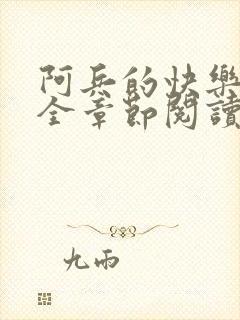 阿兵的快樂
全章節閱讀
九雨